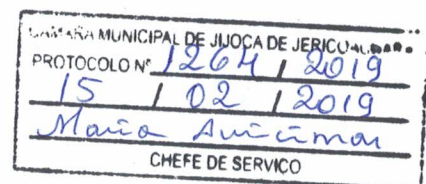 CÂMARA MUNICIPAL DE JIJOCA DE JERICOACOARA
PROTOCOLO Nº 1264 / 2019
15 / 02 / 2019
Maria
CHEFE DE SERVICO